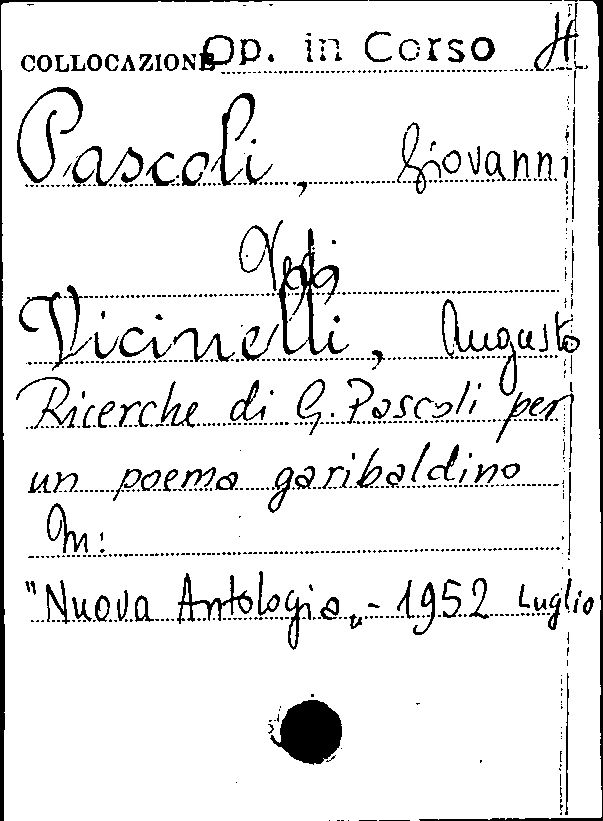 COLLOCAZIONE Op. in Corso H
Pascoli, Giovanni
Vedi
Vicinelli, Augusto
Ricerche di G. Pascoli per
un poema garibaldino
In:
"Nuova Antologia„ - 1952 Luglio